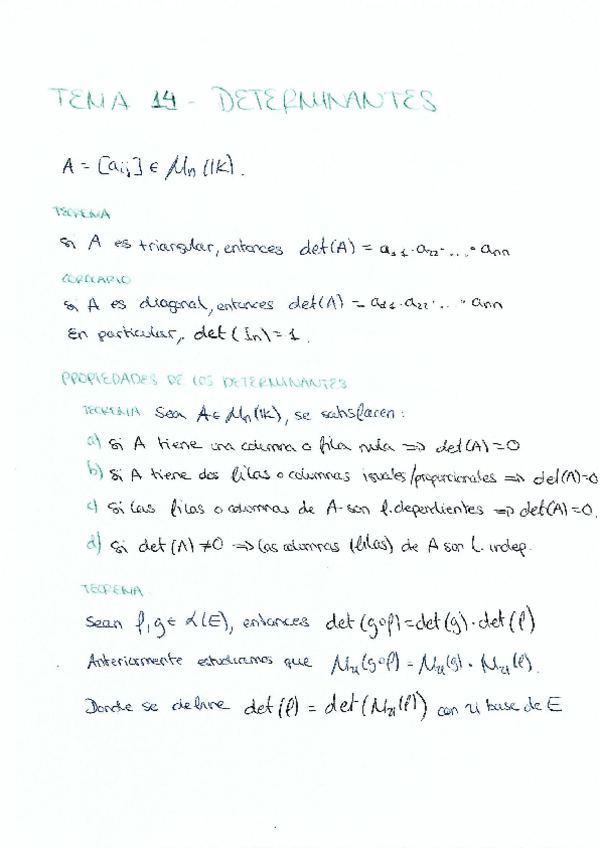 TEMA 14 - DETERMINANTES
A = [aij] ∈ Mn (IK).
TEOREMA
Si A es triangular, entonces det(A) = a11·a22·...·ann
COROLARIO
Si A es diagonal, entonces det(A) = a11·a22·...·ann
En particular, det(In)=1.
PROPIEDADES DE LOS DETERMINANTES
TEOREMA Sea A∈Mn(IK), se satisfacen:
a) Si A tiene una columna o fila nula ⇒ det(A)=0
b) Si A tiene dos filas o columnas iguales/proporcionales ⇒ det(A)=0
c) Si las filas o columnas de A son l.dependientes ⇒ det(A)=0.
d) Si det(A)≠0 ⇒ las columnas (filas) de A son L. indep.
TEOREMA
Sean f,g∈ L(E), entonces det(g∘f)=det(g)·det(f)
Anteriormente estudiamos que Mu(g∘f) = Mu(g)·Mu(f).
Donde se define det(f) = det(Mu(f)) con U base de E